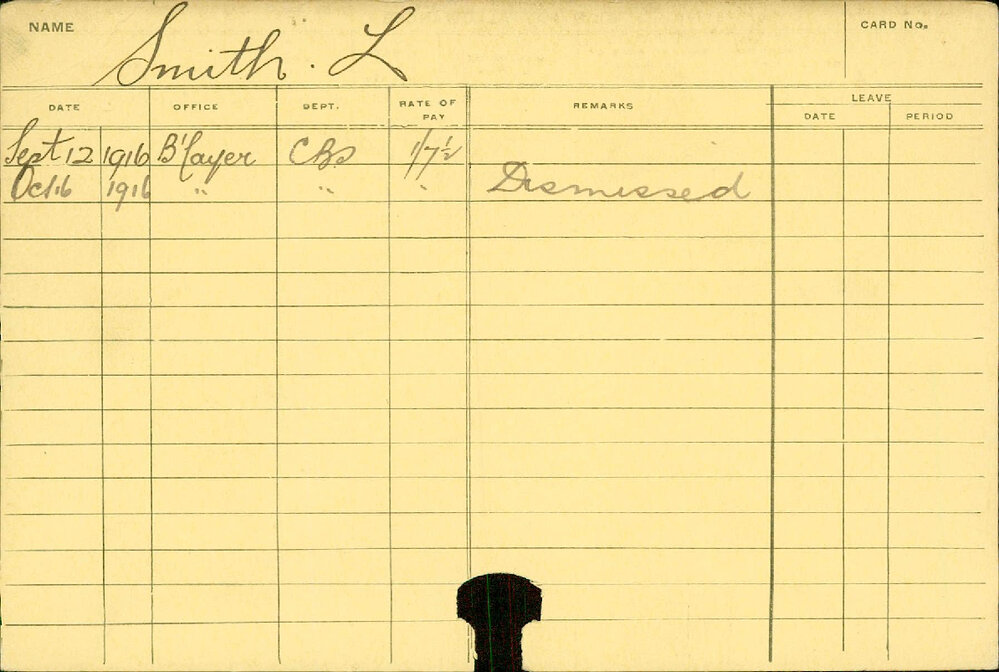 NAME Smith. L CARD No.
DATE OFFICE DEPT. RATE OF PAY REMARKS LEAVE
DATE PERIOD
Sept 12 1916 B'layer CBS 1/7½
Oct 16 1916 " " " Dismissed